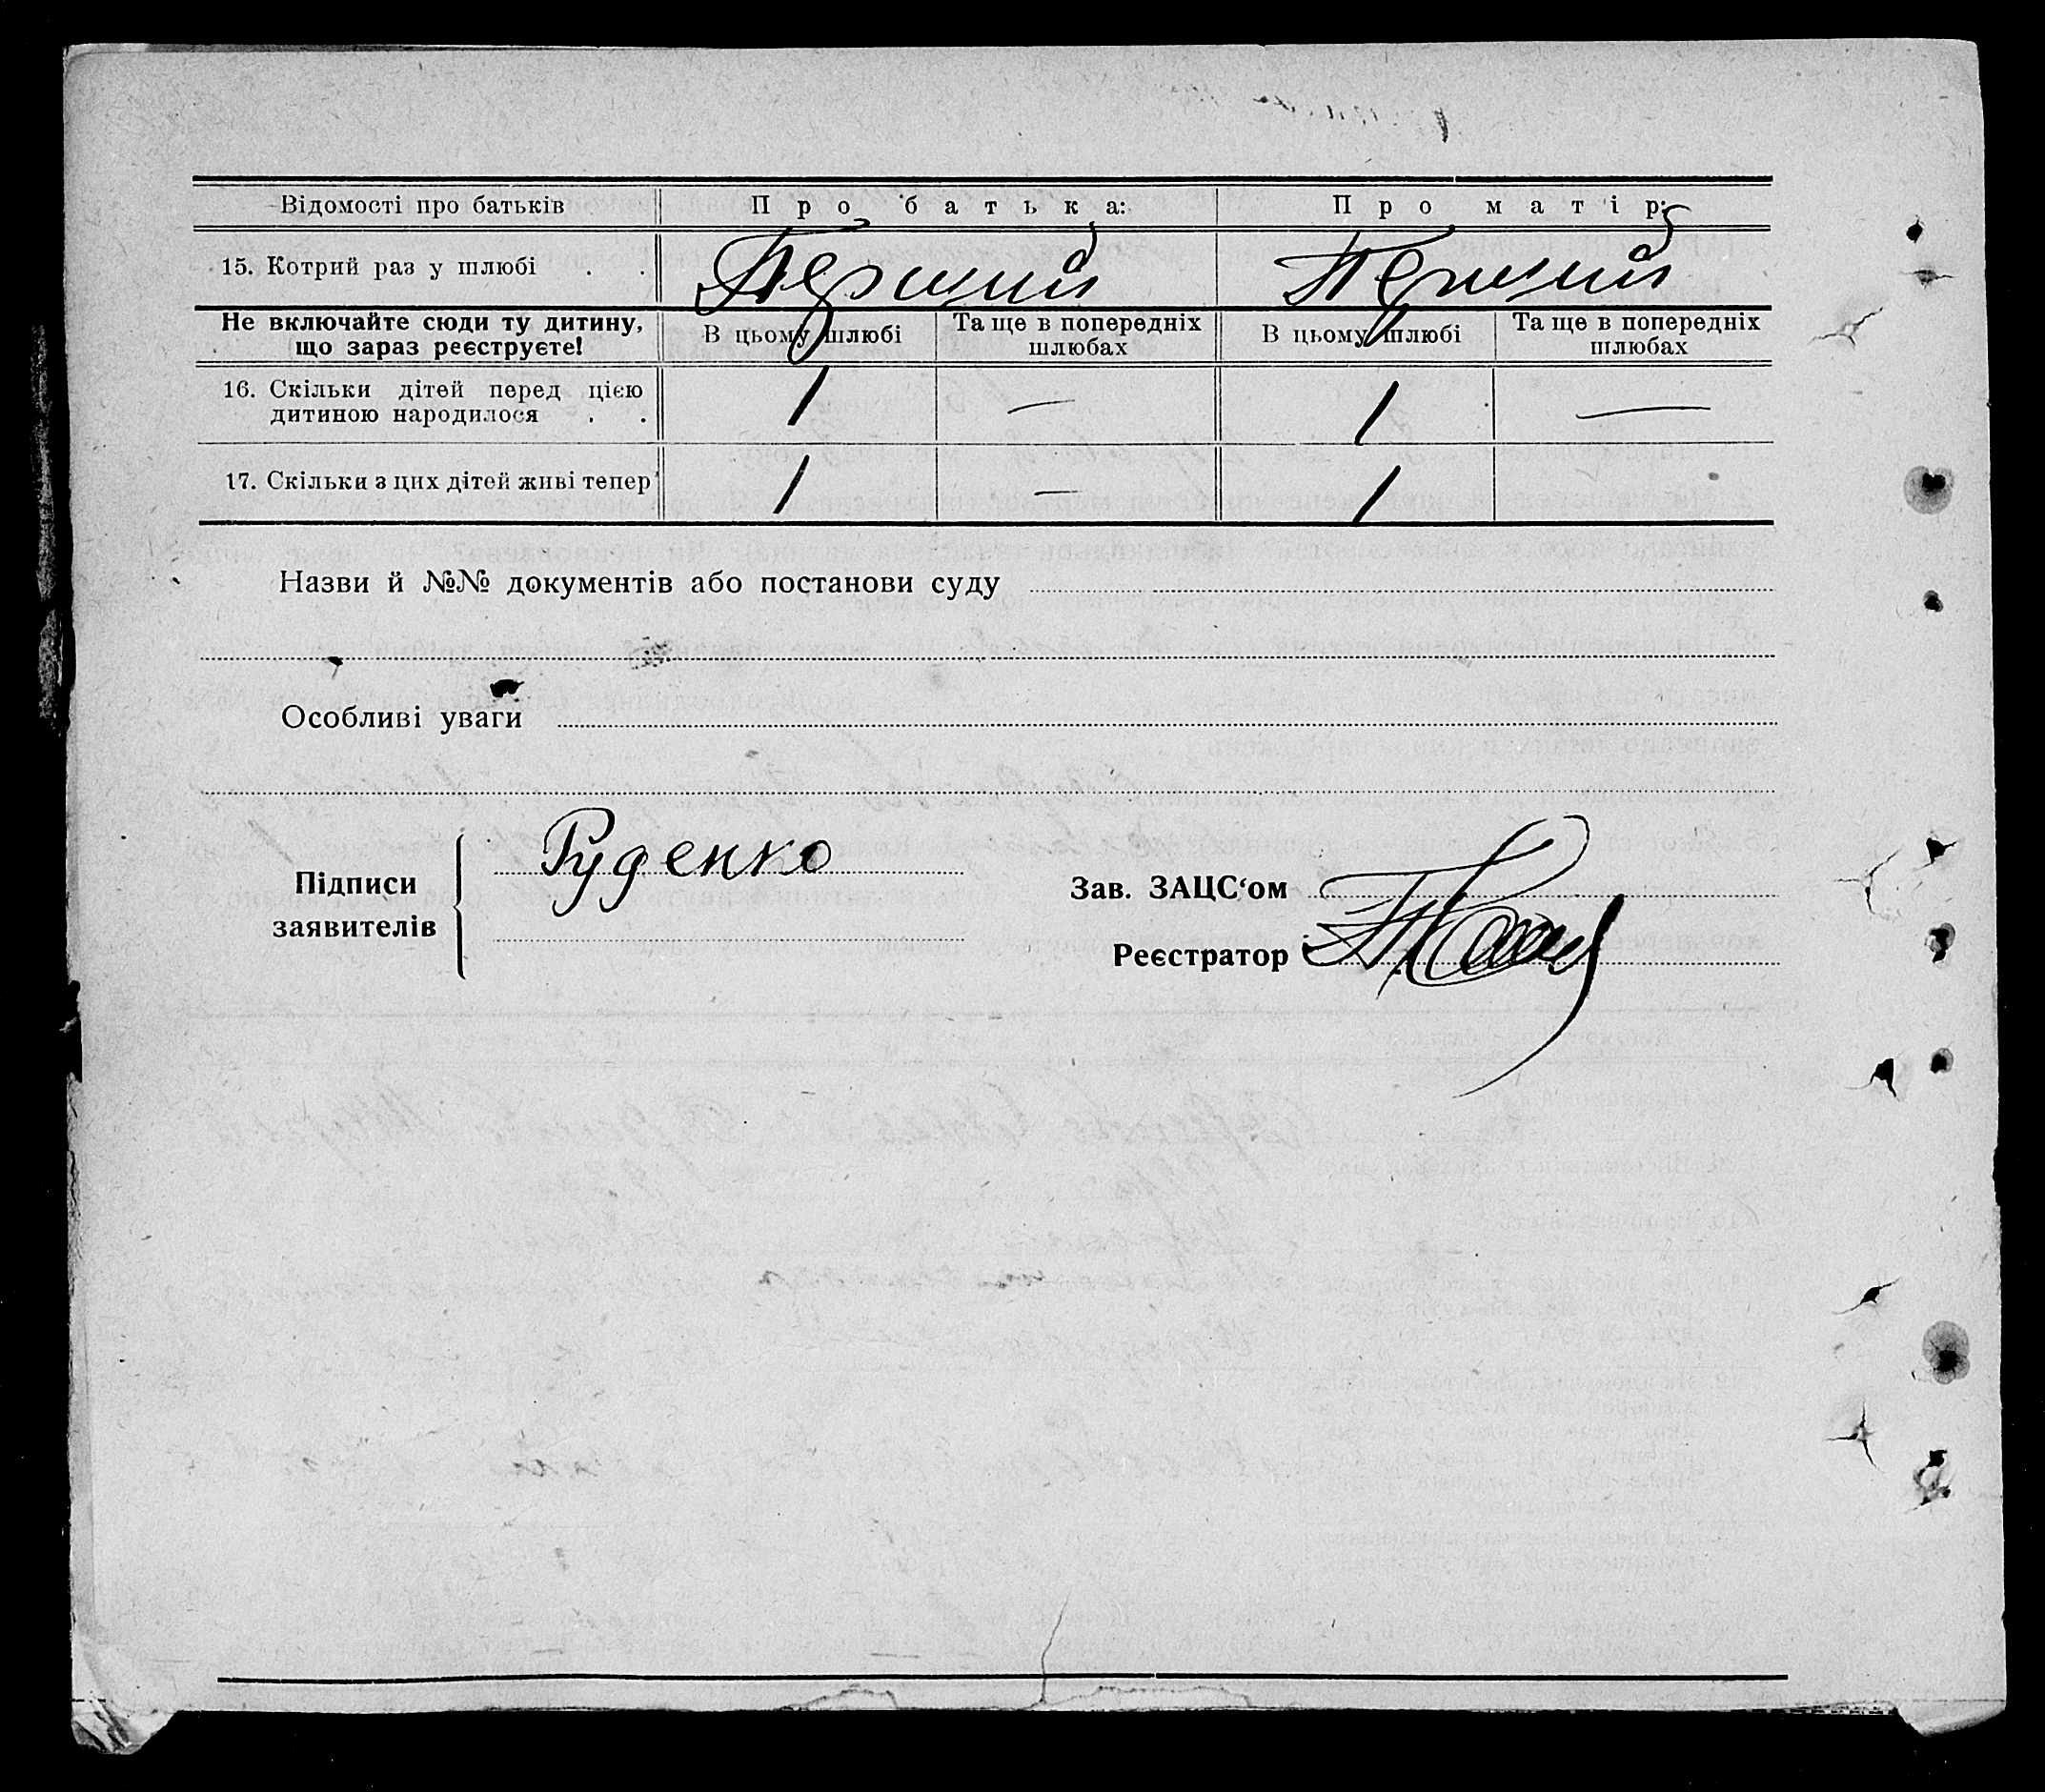 Відомості про батьків Про батька: Про матір:
15. Котрий раз у шлюбі . . Перший Перший
Не включайте сюди ту дитину, що зараз реєструєте! В цьому шлюбі Та ще в попередніх шлюбах В цьому шлюбі Та ще в попередніх шлюбах
16. Скільки дітей перед цією
дитиною народилося . . 1 — 1 —
17. Скільки з цих дітей живі тепер 1 — 1
Назви й №№ документів або постанови суду
Особливі уваги
Підписи
заявителів
Руденко
Зав. ЗАЦС‘ом
Реєстратор